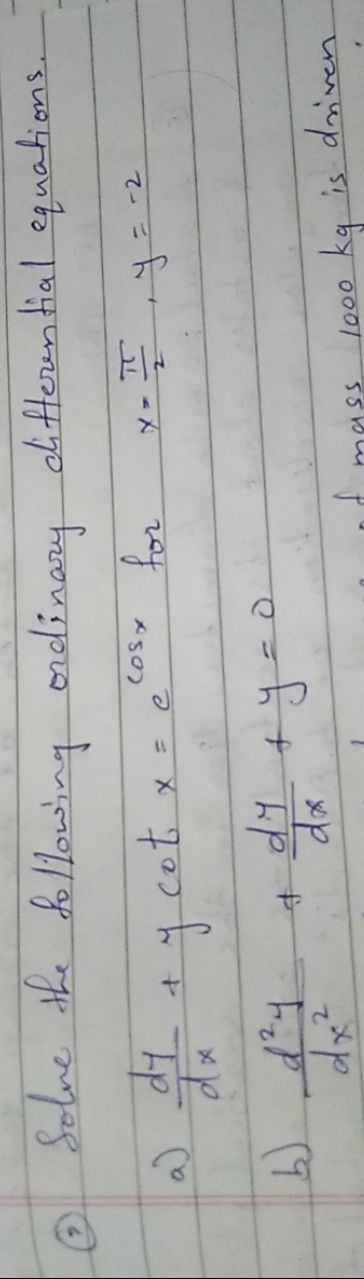 ② Solve the following ordinary differential equations.
a) dy/dx + y cot x = e^cosx for x = π/2, y = -2
b) d²y/dx² + dy/dx + y = 0
mass 1000 kg is driven